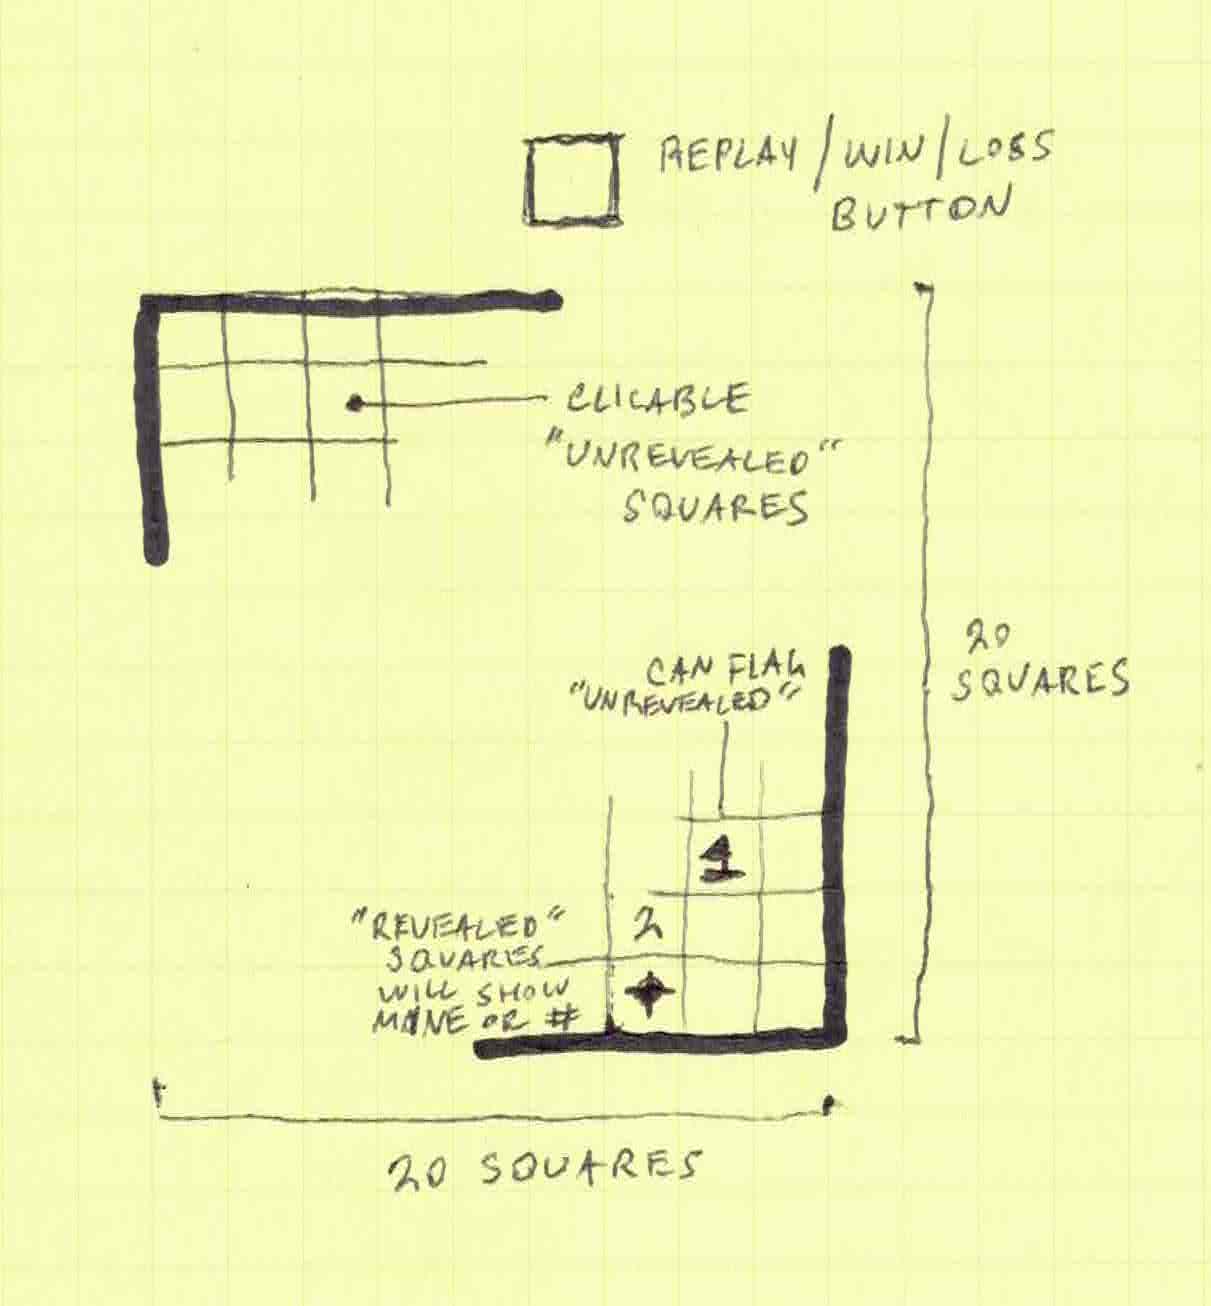 REPLAY/WIN/LOSS
BUTTON
CLICABLE
"UNREVEALED"
SQUARES
20
SQUARES
CAN FLAG
"UNREVEALED"
2
"REVEALED"
SQUARES
WILL SHOW
MINE OR #
20 SQUARES